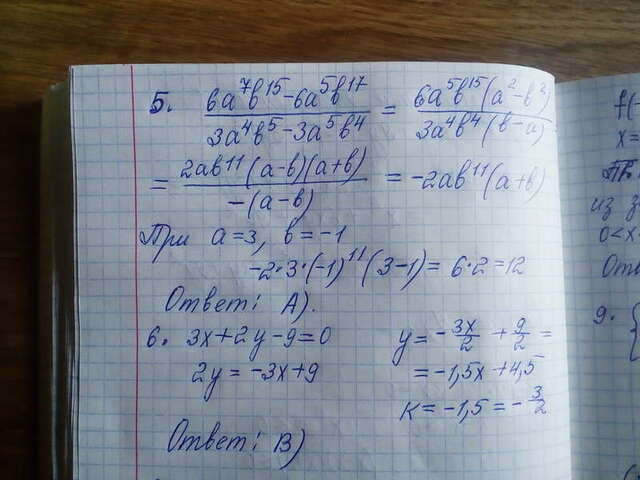 5. (6a⁷b¹⁵-6a⁵b¹⁷)/(3a⁴b⁵-3a⁵b⁴) = (6a⁵b¹⁵(a²-b²))/(3a⁴b⁴(b-a))
= (2ab¹¹(a-b)(a+b))/(-(a-b)) = -2ab¹¹(a+b)
При a=3, b=-1
-2·3·(-1)¹¹(3-1)= 6·2=12
Ответ: А).
6. 3x+2y-9=0
2y=-3x+9
y= -3x/2 + 9/2 =
= -1,5x+4,5
k= -1,5 = -3/2
Ответ: В)
f(
x=
из з
0<x
Отв
9. {